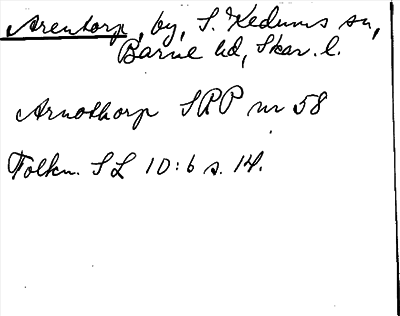 Arentorp, by, S. Kedums sn,
Barne hd, Skar. l.
Arnothorp SRP nr 58
Tolkn. SL 10:6 s. 14.